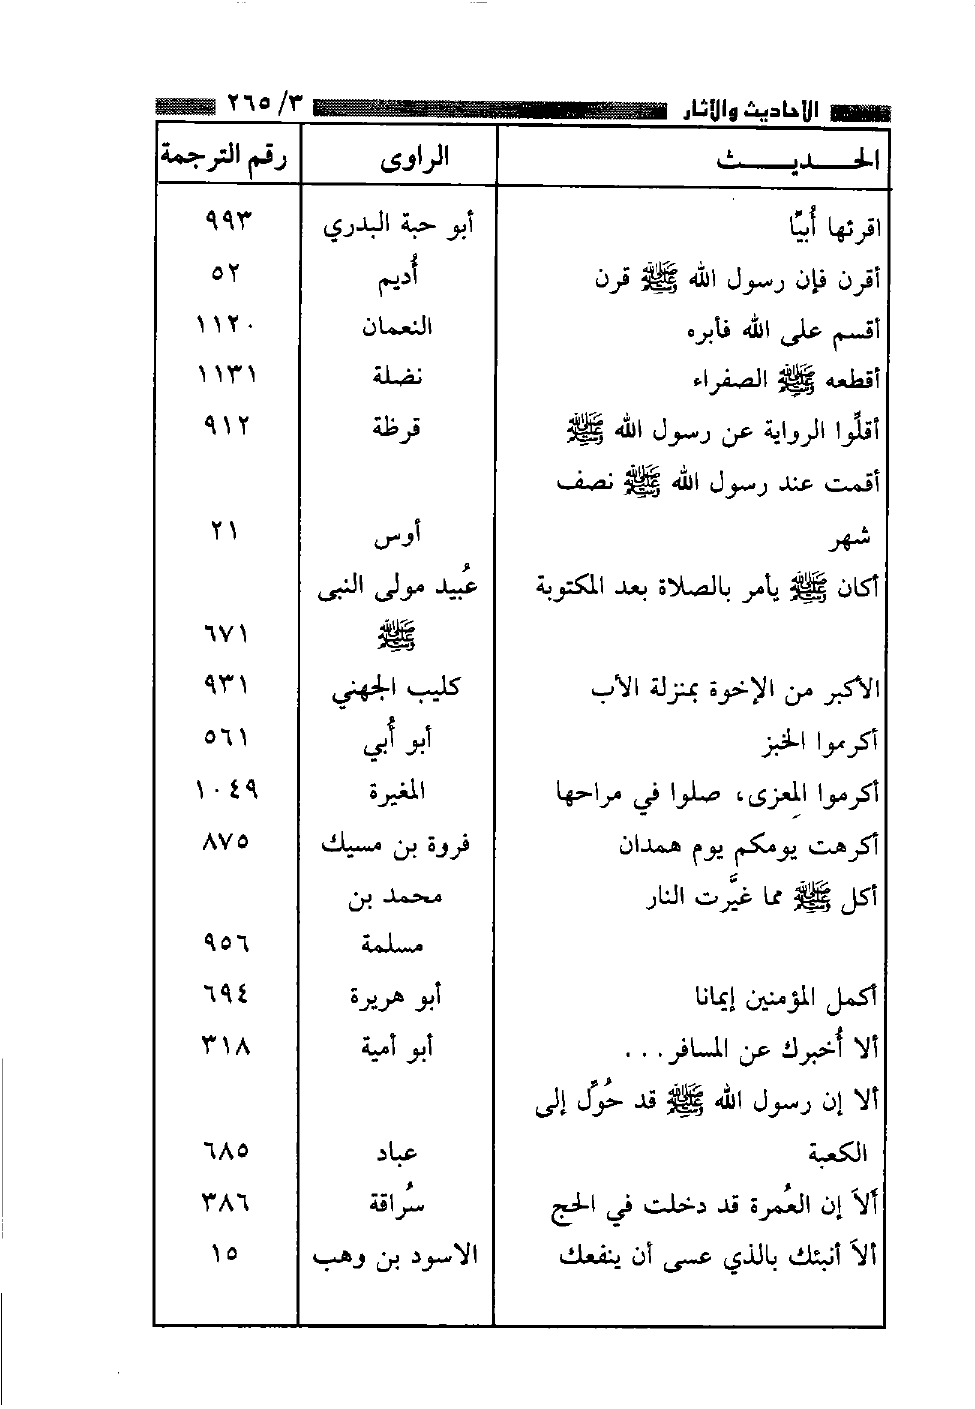 الأحاديث والآثار ٣/ ٢٦٥
الحـــديـــــث الراوى رقم الترجمة
اقرئها أُبيًّا أبو حبة البدري ٩٩٣
أقرن فإن رسول الله ﷺ قرن أُديم ٥٢
أقسم على الله فأبره النعمان ١١٢٠
أقطعه ﷺ الصفراء نضلة ١١٣١
أقلِّوا الرواية عن رسول الله ﷺ قرظة ٩١٢
أقمت عند رسول الله ﷺ نصف
شهر أوس ٢١
أكان ﷺ يأمر بالصلاة بعد المكتوبة عُبيد مولى النبى
ﷺ ٦٧١
الأكبر من الإخوة بمنزلة الأب كليب الجهني ٩٣١
أكرموا الخبز أبو أُبي ٥٦١
أكرموا المِعزى، صلوا في مراحها المغيرة ١٠٤٩
أكرهت يومكم يوم همدان فروة بن مسيك ٨٧٥
أكل ﷺ مما غيَّرت النار محمد بن
مسلمة ٩٥٦
أكمل المؤمنين إيمانا أبو هريرة ٦٩٤
ألا أُخبرك عن المسافر... أبو أمية ٣١٨
ألا إن رسول الله ﷺ قد حُوِّل إلى
الكعبة عباد ٦٨٥
ألاَ إن العُمرة قد دخلت في الحج سُراقة ٣٨٦
ألاَ أنبئك بالذي عسى أن ينفعك الاسود بن وهب ١٥